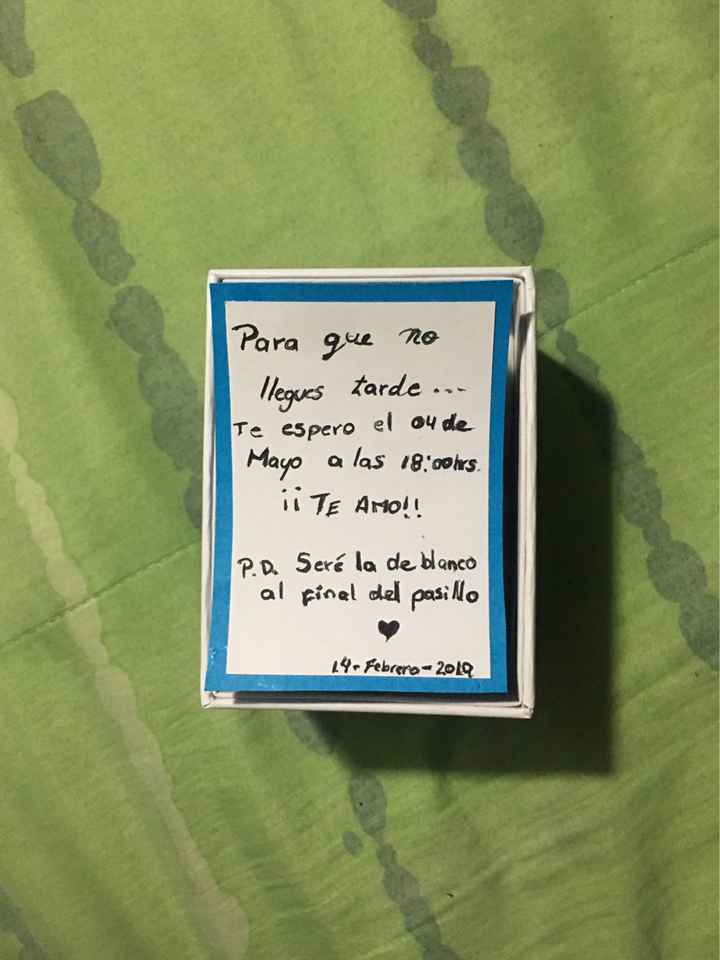 Para que no
llegues tarde ...
Te espero el 04 de
Mayo a las 18:00hrs.
¡¡ TE AMO!!
P.D. Seré la de blanco
al final del pasillo
♥
14-Febrero-2019